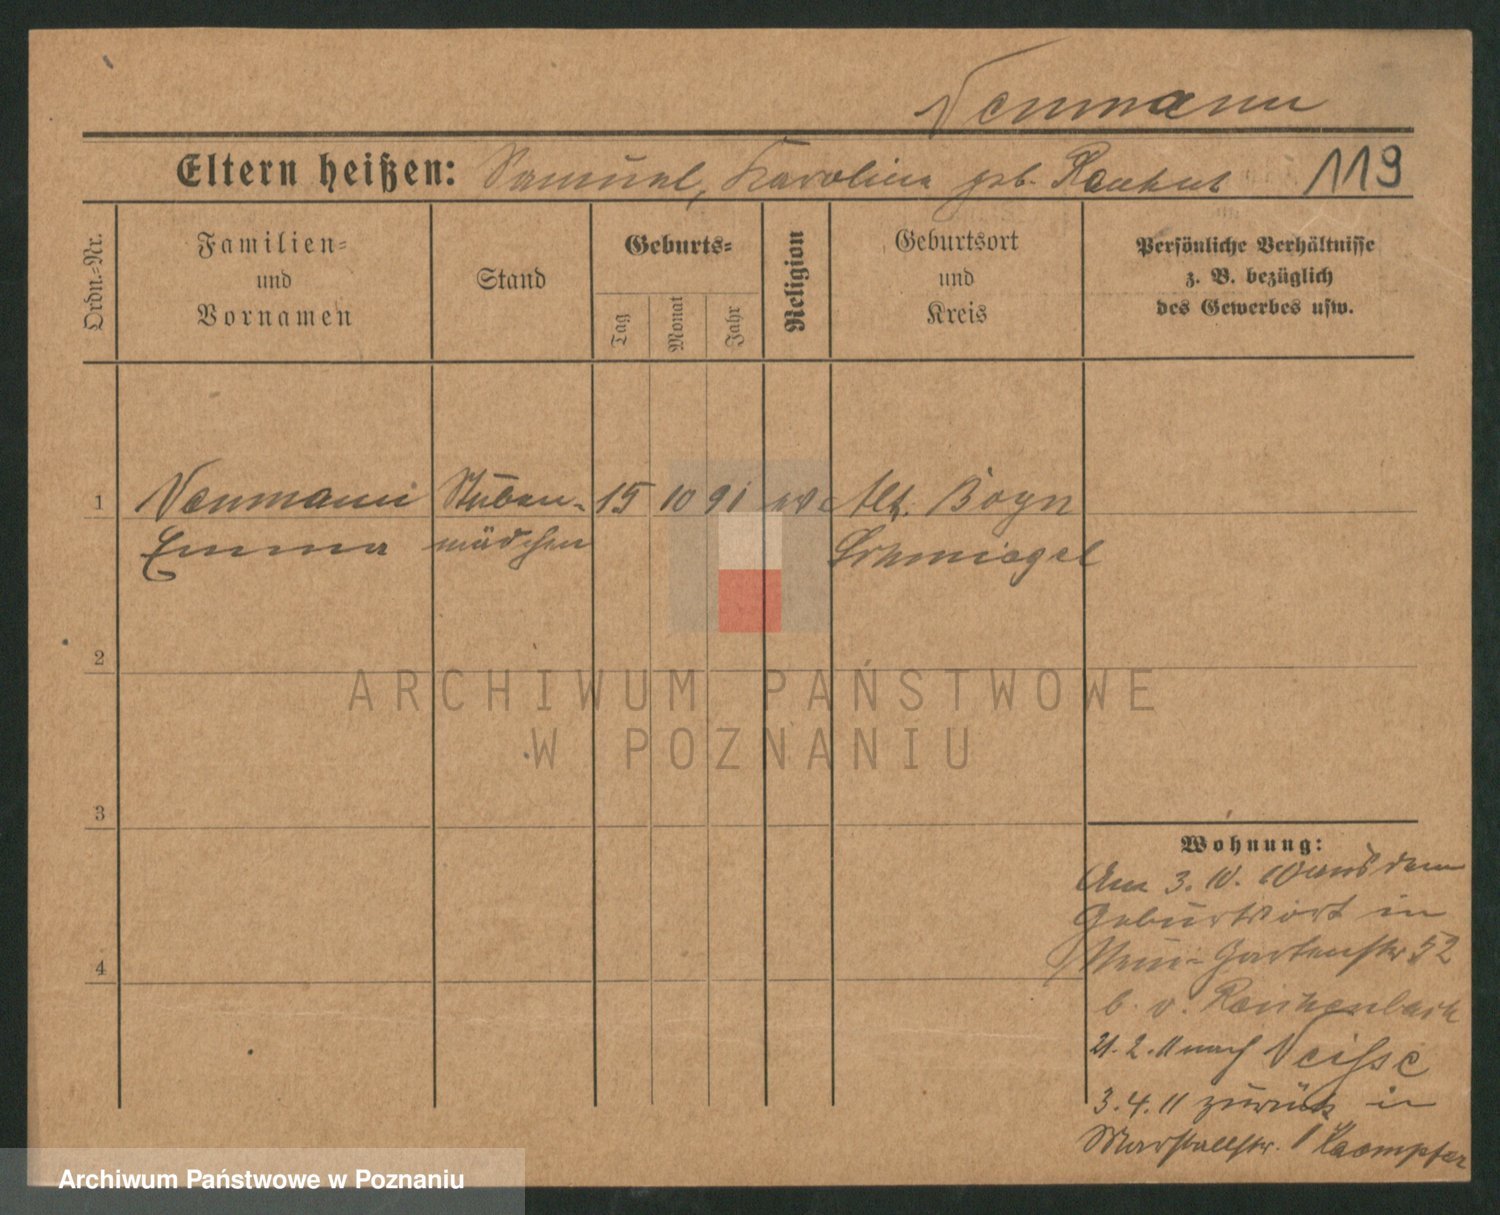 Neumann
Eltern heißen: Samuel, Karoline geb. Rauhut 119
Ordn.-Nr.
Familien-
und
Vornamen
Stand
Geburts-
Tag
Monat
Jahr
Religion
Geburtsort
und
Kreis
Persönliche Verhältnisse
z. B. bezüglich
des Gewerbes usw.
1 Neumann Stuben- 15 10 91 ev Alt. Boyn
Emma mädchen Schmiegel
2
ARCHIWUM PAŃSTWOWE
W POZNANIU
3
Wohnung:
Am 3. 10. 10 aus dem
Geburtsort in
Neue Gartenstr 52
b. v. Reichenbach
4
21. 2. 11 nach Neisse
3. 4. 11 zurück in
Marstallstr. 1 Kaempfer
Archiwum Państwowe w Poznaniu